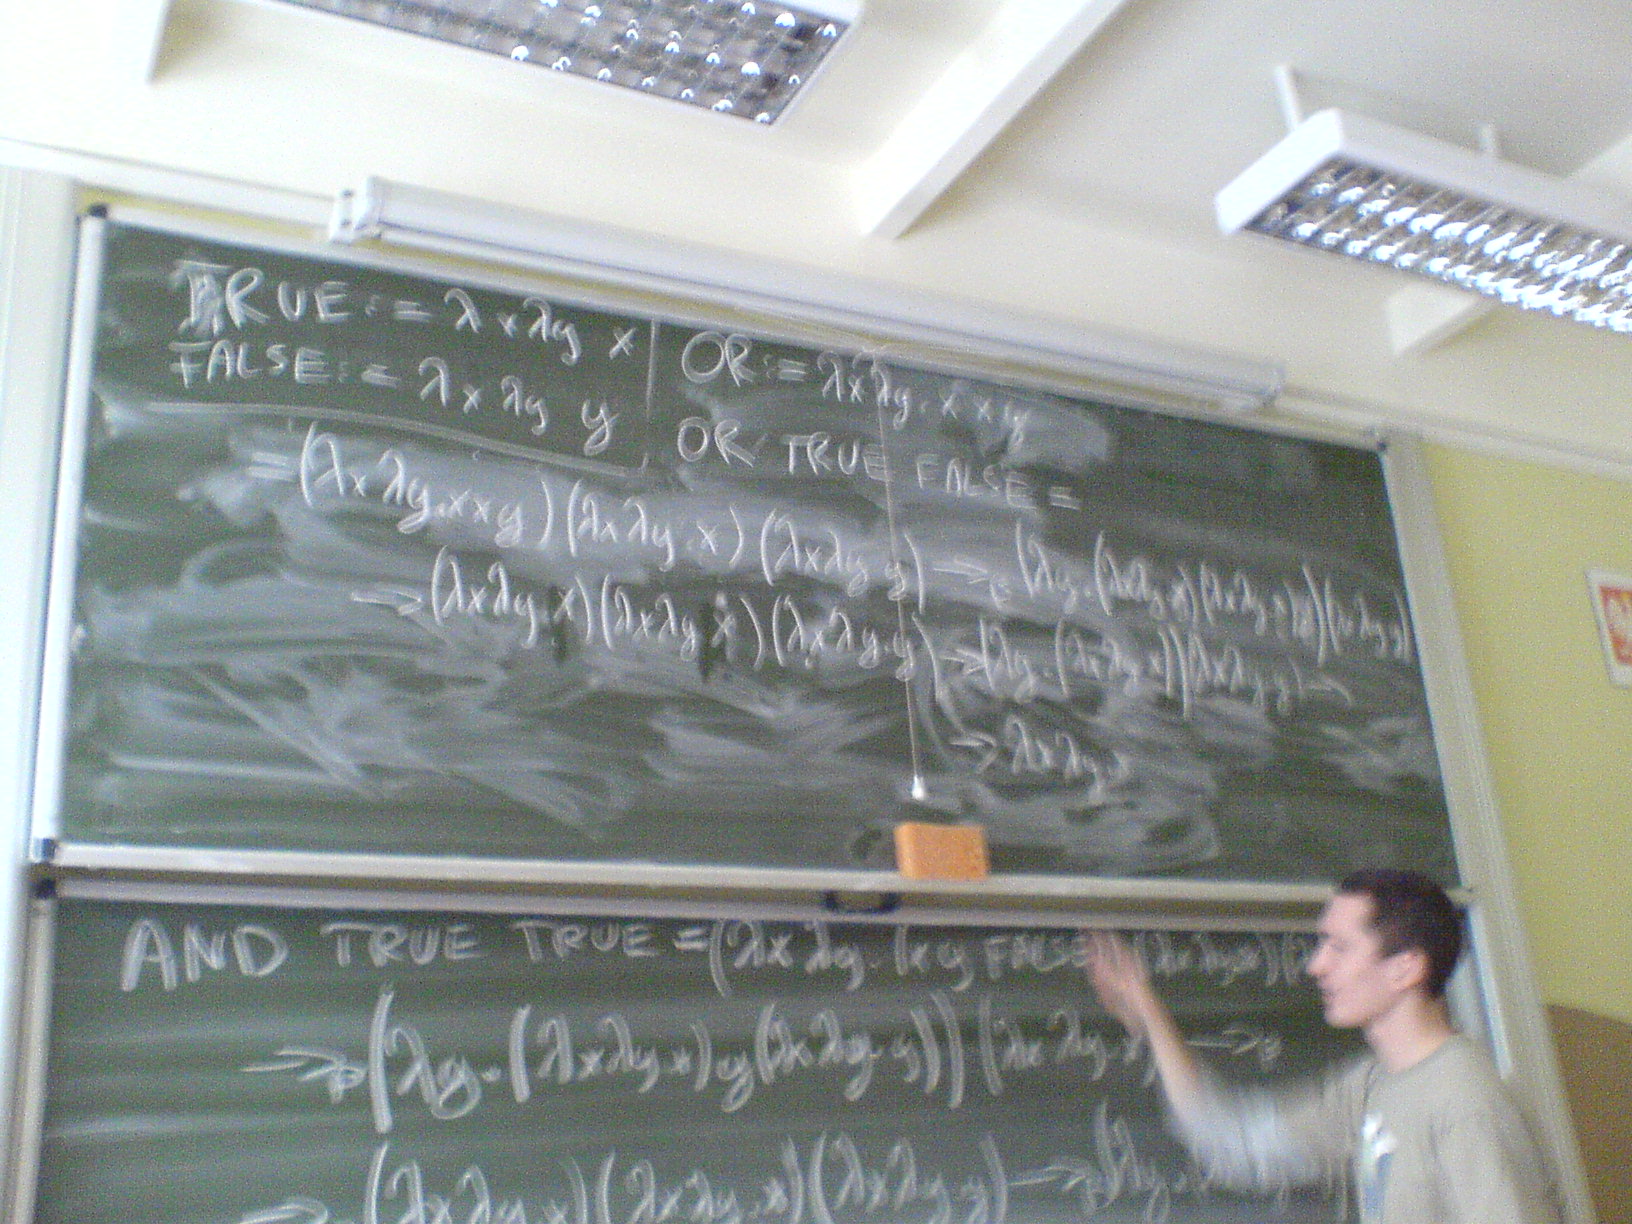 TRUE := λxλy x
FALSE := λxλy y
OR := λxλy. x x y
OR TRUE FALSE =
= (λxλy.xxy)(λxλy.x)(λxλy.y) →β (λy.(λxλy.x)(λxλy.x)y)(λxλy.y)
→ (λxλy.x)(λxλy.x)(λxλy.y) → (λy.(λxλy.x))(λxλy.y) →
→ λxλy.x
AND TRUE TRUE = (λxλy.(xy FALSE)) (λxλy.x)(λ
→β (λy.((λxλy.x)y(λxλy.y))) (λxλy.x) →β
→ (λxλy.x)(λxλy.x)(λxλy.y) →β (λy.